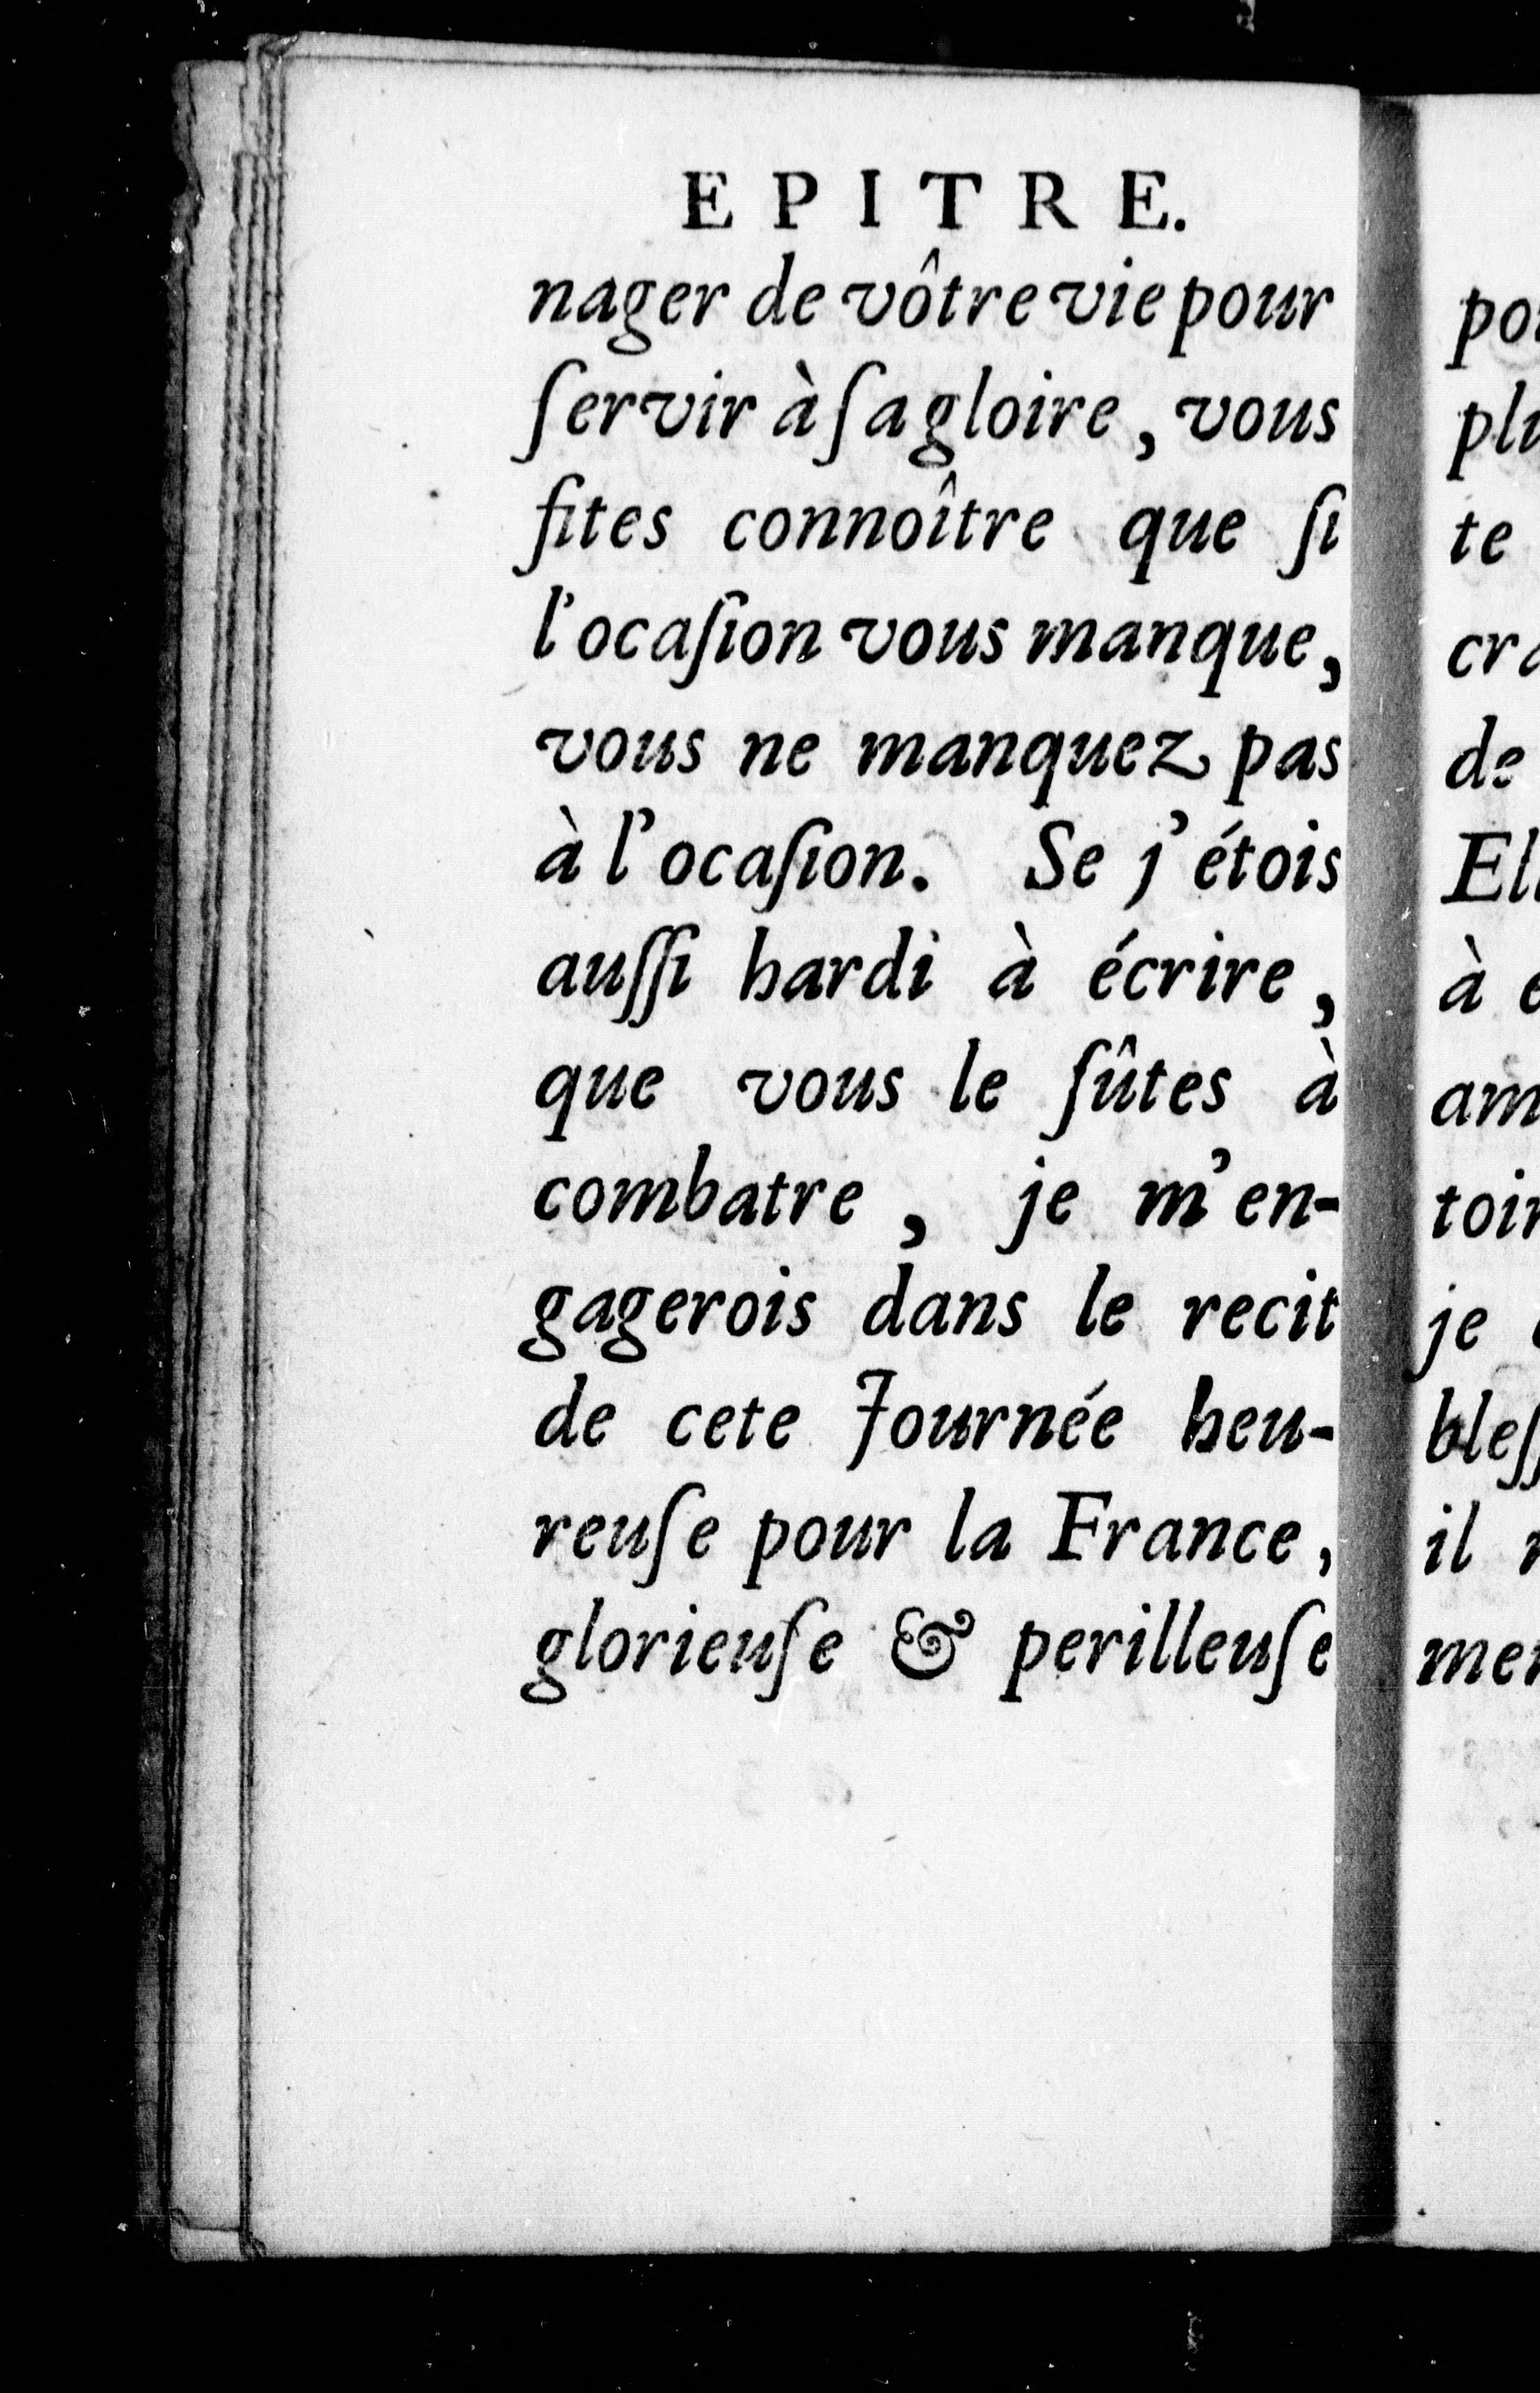 EPITRE.
nager de vôtre vie pour
ſervir à ſa gloire, vous
fites connoître que ſi
l'ocaſion vous manque,
vous ne manquez pas
à l'ocaſion. Se j'étois
auſſi hardi à écrire,
que vous le fûtes à
combatre, je m'en-
gagerois dans le recit
de cete Journée heu-
reuſe pour la France,
glorieuſe & perilleuſe
te
de
je
il